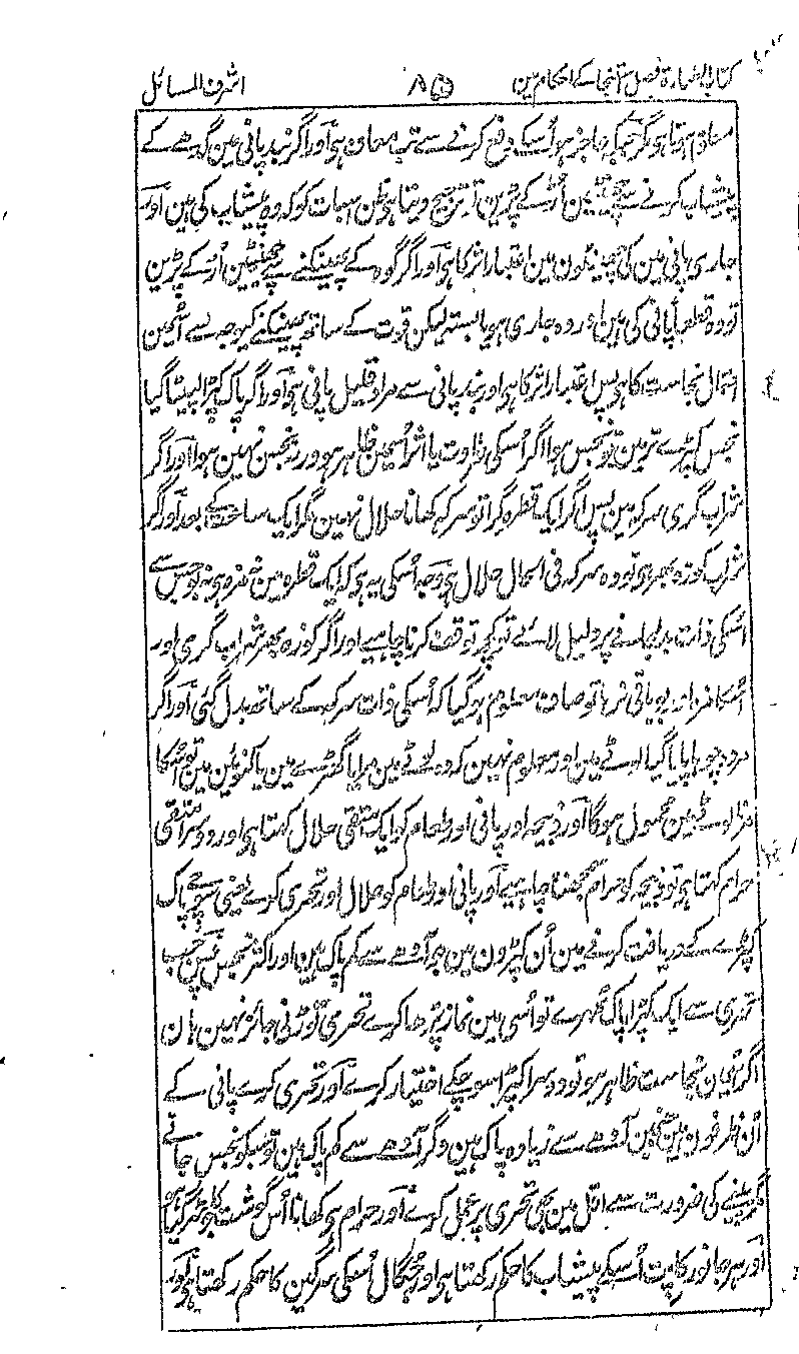 کتاب الطہارۃ فصل استنجا کے احکام مین ۸۵ اشرف المسائل
معلوم ہوتا ہو مگر جبکہ عاجز ہو اُسکے دفع کرنے سے تب معاف ہی اور اگر بند پانی مین گدھے کے
پیشاب کرنے سے چھینٹین اُڑکے پڑین تو ترجیح دیتا ہی ظن اسبات کو کہ وہ پیشاب کی ہین اور
جاری پانی مین کی چھینٹون مین اعتبار اثر کا ہی اور اگر گوہ کے پھینکنے سے چھینٹین اُڑکے پڑین
تو وہ قطعاً پانی کی ہین اور وہ جاری ہو یا بستہ لیکن قوت کے ساتھ پھینکنے کیوجہ سے اُسمین
احتمال نجاست کا ہی پس اعتبار اثر کا ہی اور بند پانی سے مراد قلیل پانی ہی اور اگر پاک کپڑا لپیٹا گیا
نجس کپڑے تر مین تو نجس ہوا اگر اُسکی رطوبت یا اثر اُسمین ظاہر ہو ورنہ نجس نہین ہوا اور اگر
شراب گری سرکہ مین پس اگر ایک قطرہ گرا تو سرکہ کھانا حلال نہین مگر ایک ساعت کے بعد اور اگر
شراب کوزہ بھر ہی تو وہ سرکہ فی الحال حلال ہی وجہ اُسکی یہ ہی کہ ایک قطرہ مین نہ مزہ ہی نہ بو جس سے
اُسکی ذات بدلجانے پر دلیل لائے تو کچھ توقف کرنا چاہیے اور اگر کوزہ بھر شراب گری اور
اُسکا مزا اور بو باقی نرہا تو صاف معلوم ہو گیا کہ اُسکی ذات سرکہ کے ساتھ بدل گئی اور اگر
مردہ چوہا پایا گیا لوٹے مین اور معلوم نہین کہ وہ لوٹے مین مرا یا گھڑے مین یا کنوئین مین تو اُسکا
مرنا لوٹے مین محمول ہوگا اور ذبیحہ اور پانی اور طعام کو ایک متقی حلال کہتا ہی اور دوسرا متقی
حرام کہتا ہی تو ذبیحہ کو حرام سمجھنا چاہیے اور پانی اور طعام کو حلال اور تحری کرے یعنی سوچے پاک
کپڑے کے دریافت کرنے مین اُن کپڑون مین جو آدھے سے کم پاک ہین اور اکثر نجس ہین پس جب
تحری سے ایک کپڑا پاک ٹھہرے تو اُسی مین نماز پڑھا کرے تحری توڑنی جائز نہین ہان
اگر نجاست ظاہر ہو تو دوسرا کپڑا سوچکے اختیار کرے اور تحری کرے پانی کے
اُن ظرفون مین جنمین آدھے سے زیادہ پاک ہین وگر آدھے سے کم پاک ہین تو سبکو نجس جانے
مگر پینے کی ضرورت سے اقل مین بھی تحری پر عمل کرے اور حرام ہی کھانا اُس گوشت کا جو سڑ گیا ہو
اور ہر جانور کا پت اُسکے پیشاب کا حکم رکھتا ہی اور جگال اُسکی سرگین کا حکم رکھتا ہی اور